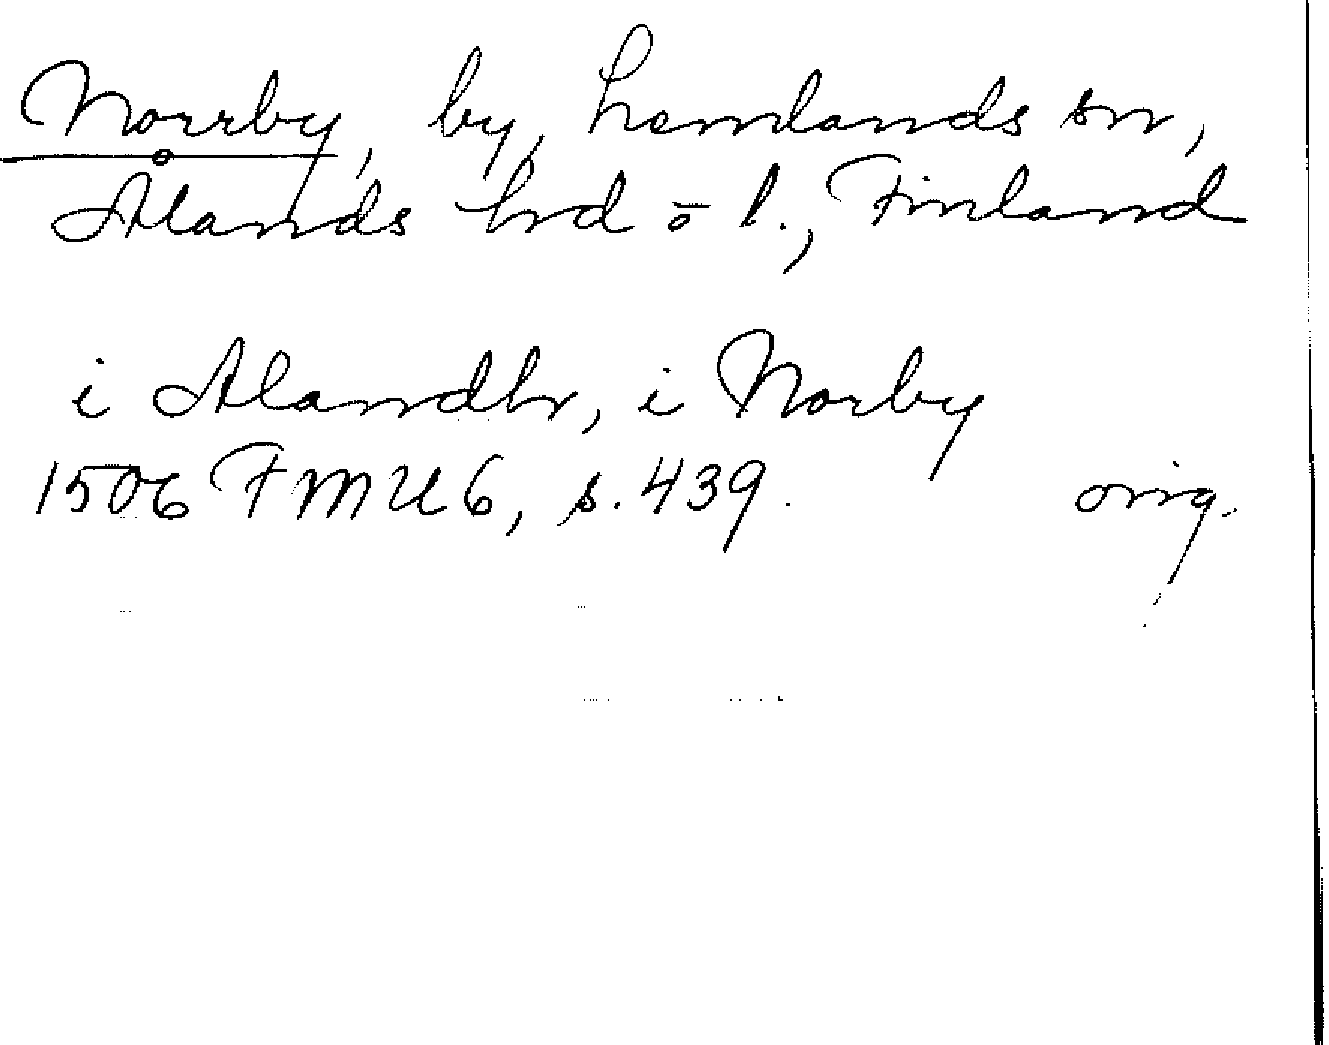 Norrby, by, Lemlands sn,
Ålands hd o l., Finland
i Alandh, i Norby
1506 FMU 6, s. 439. orig.